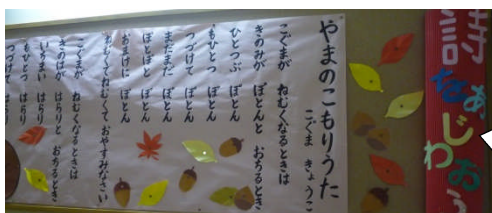 詩をあじわおう
やまのこもりうた
こぐま きょうこ
こぐまが ねむくなるときは
きのみが ぽとんと おちるとき
ひとつぶ ぽとん
もひとつ ぽとん
つづけて ぽとん
まだまだ ぽとん
ぽとぽと ぽとん
おまけに ぽとん
ねむくてねむくて おやすみなさい
こぐまが ねむくなるときは
きのはが はらりと おちるとき
いちまい はらり
もひとつ はらり
つづけて はらり